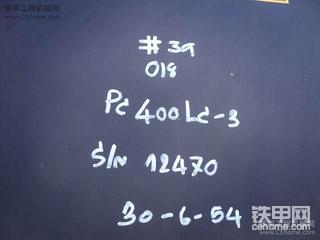 铁甲工程机械网
www.cehome.com
#39
018
PC 400LC-3
S/N 12470
30-6-54
铁甲网
cehome.com